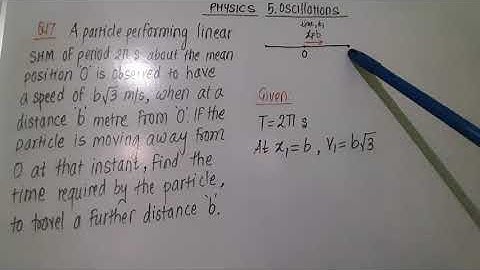 PHYSICS 5. Oscillations
Q.17 A particle performing linear
SHM of period 2π s about the mean
position 'O' is observed to have
a speed of b√3 m/s, when at a
distance 'b' metre from 'O'. If the
particle is moving away from
O at that instant, find the
time required by the particle,
to travel a further distance 'b'.
O
Given
T=2π s
At x₁=b, V₁=b√3